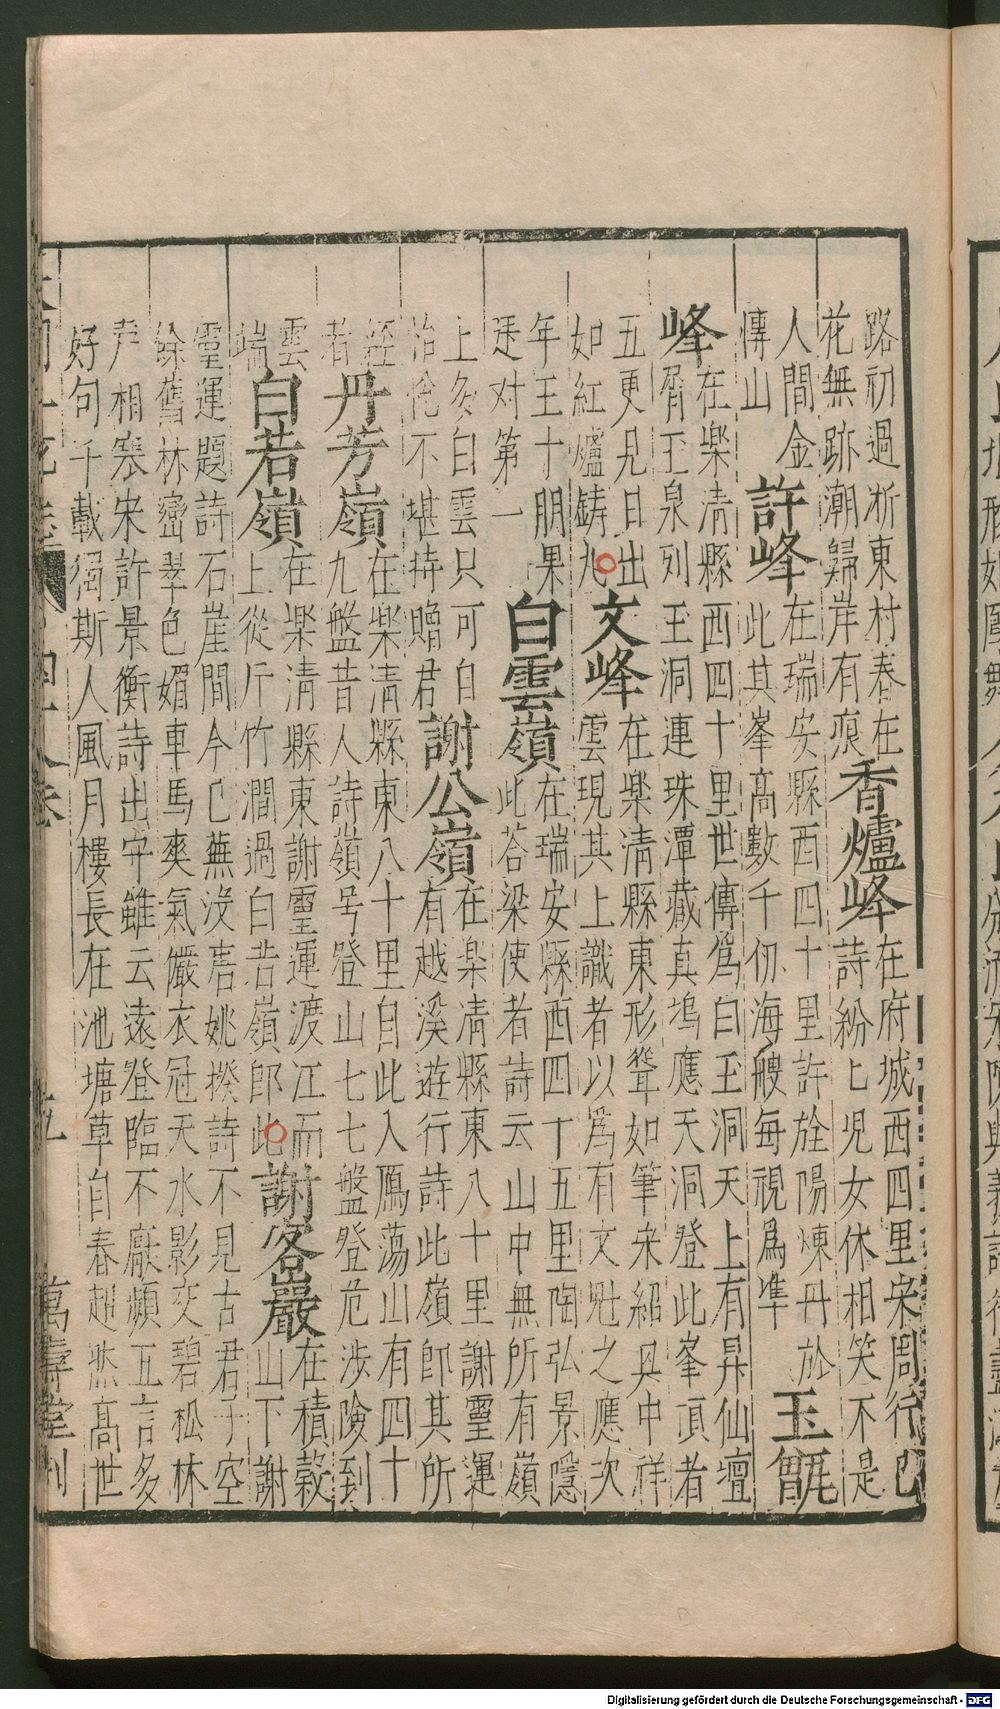 路初過浙東村春在
花無跡潮歸岸有痕
香爐峰
在府城西四里宋周行己
詩紛匕児女休相笑不是
人間金
傳山
許峰
在瑞安縣西四十里許旌陽煉丹於
此其峯高數千仞海艘每視爲凖
玉甑
峰
在樂清縣西四十里世傳爲白玉洞天上有昇仙壇
胥王泉列玉洞連珠潭藏真塢應天洞登此峯頂者
五更見日出
如紅爐鑄九
文峰
在樂清縣東形聳如筆宋紹興中祥
雲現其上識者以爲有文魁之應次
年王十朋果
廷对第一
白雲嶺
在瑞安縣西四十五里陶弘景隱
此荅梁使者詩云山中無所有嶺
上多白雲只可自
怡悅不堪持贈君
謝公嶺
在楽清縣東八十里謝靈運
有越溪遊行詩此嶺即其所
經
者
丹芳嶺
在楽清縣東八十里自此入鴈蕩山有四十
九盤昔人詩嶺号登山七七盤登危涉險到
雲
端
白若嶺
在楽清縣東謝靈運渡江而
上從斤竹澗過白若嶺即此
謝客巖
在積穀
山下謝
靈運題詩石崖間今已蕪沒唐姚揆詩不見古君子空
餘舊林巒翠色媚車馬爽氣儼衣冠天水影交碧松林
声相寒宋許景衡詩出守雖云遠登臨不厭頻五言多
好句千載獨斯人風月樓長在池塘草自春超然高世
大明一统志
四十八卷
五
萬壽堂刊
Digitalisierung gefördert durch die Deutsche Forschungsgemeinschaft - DFG